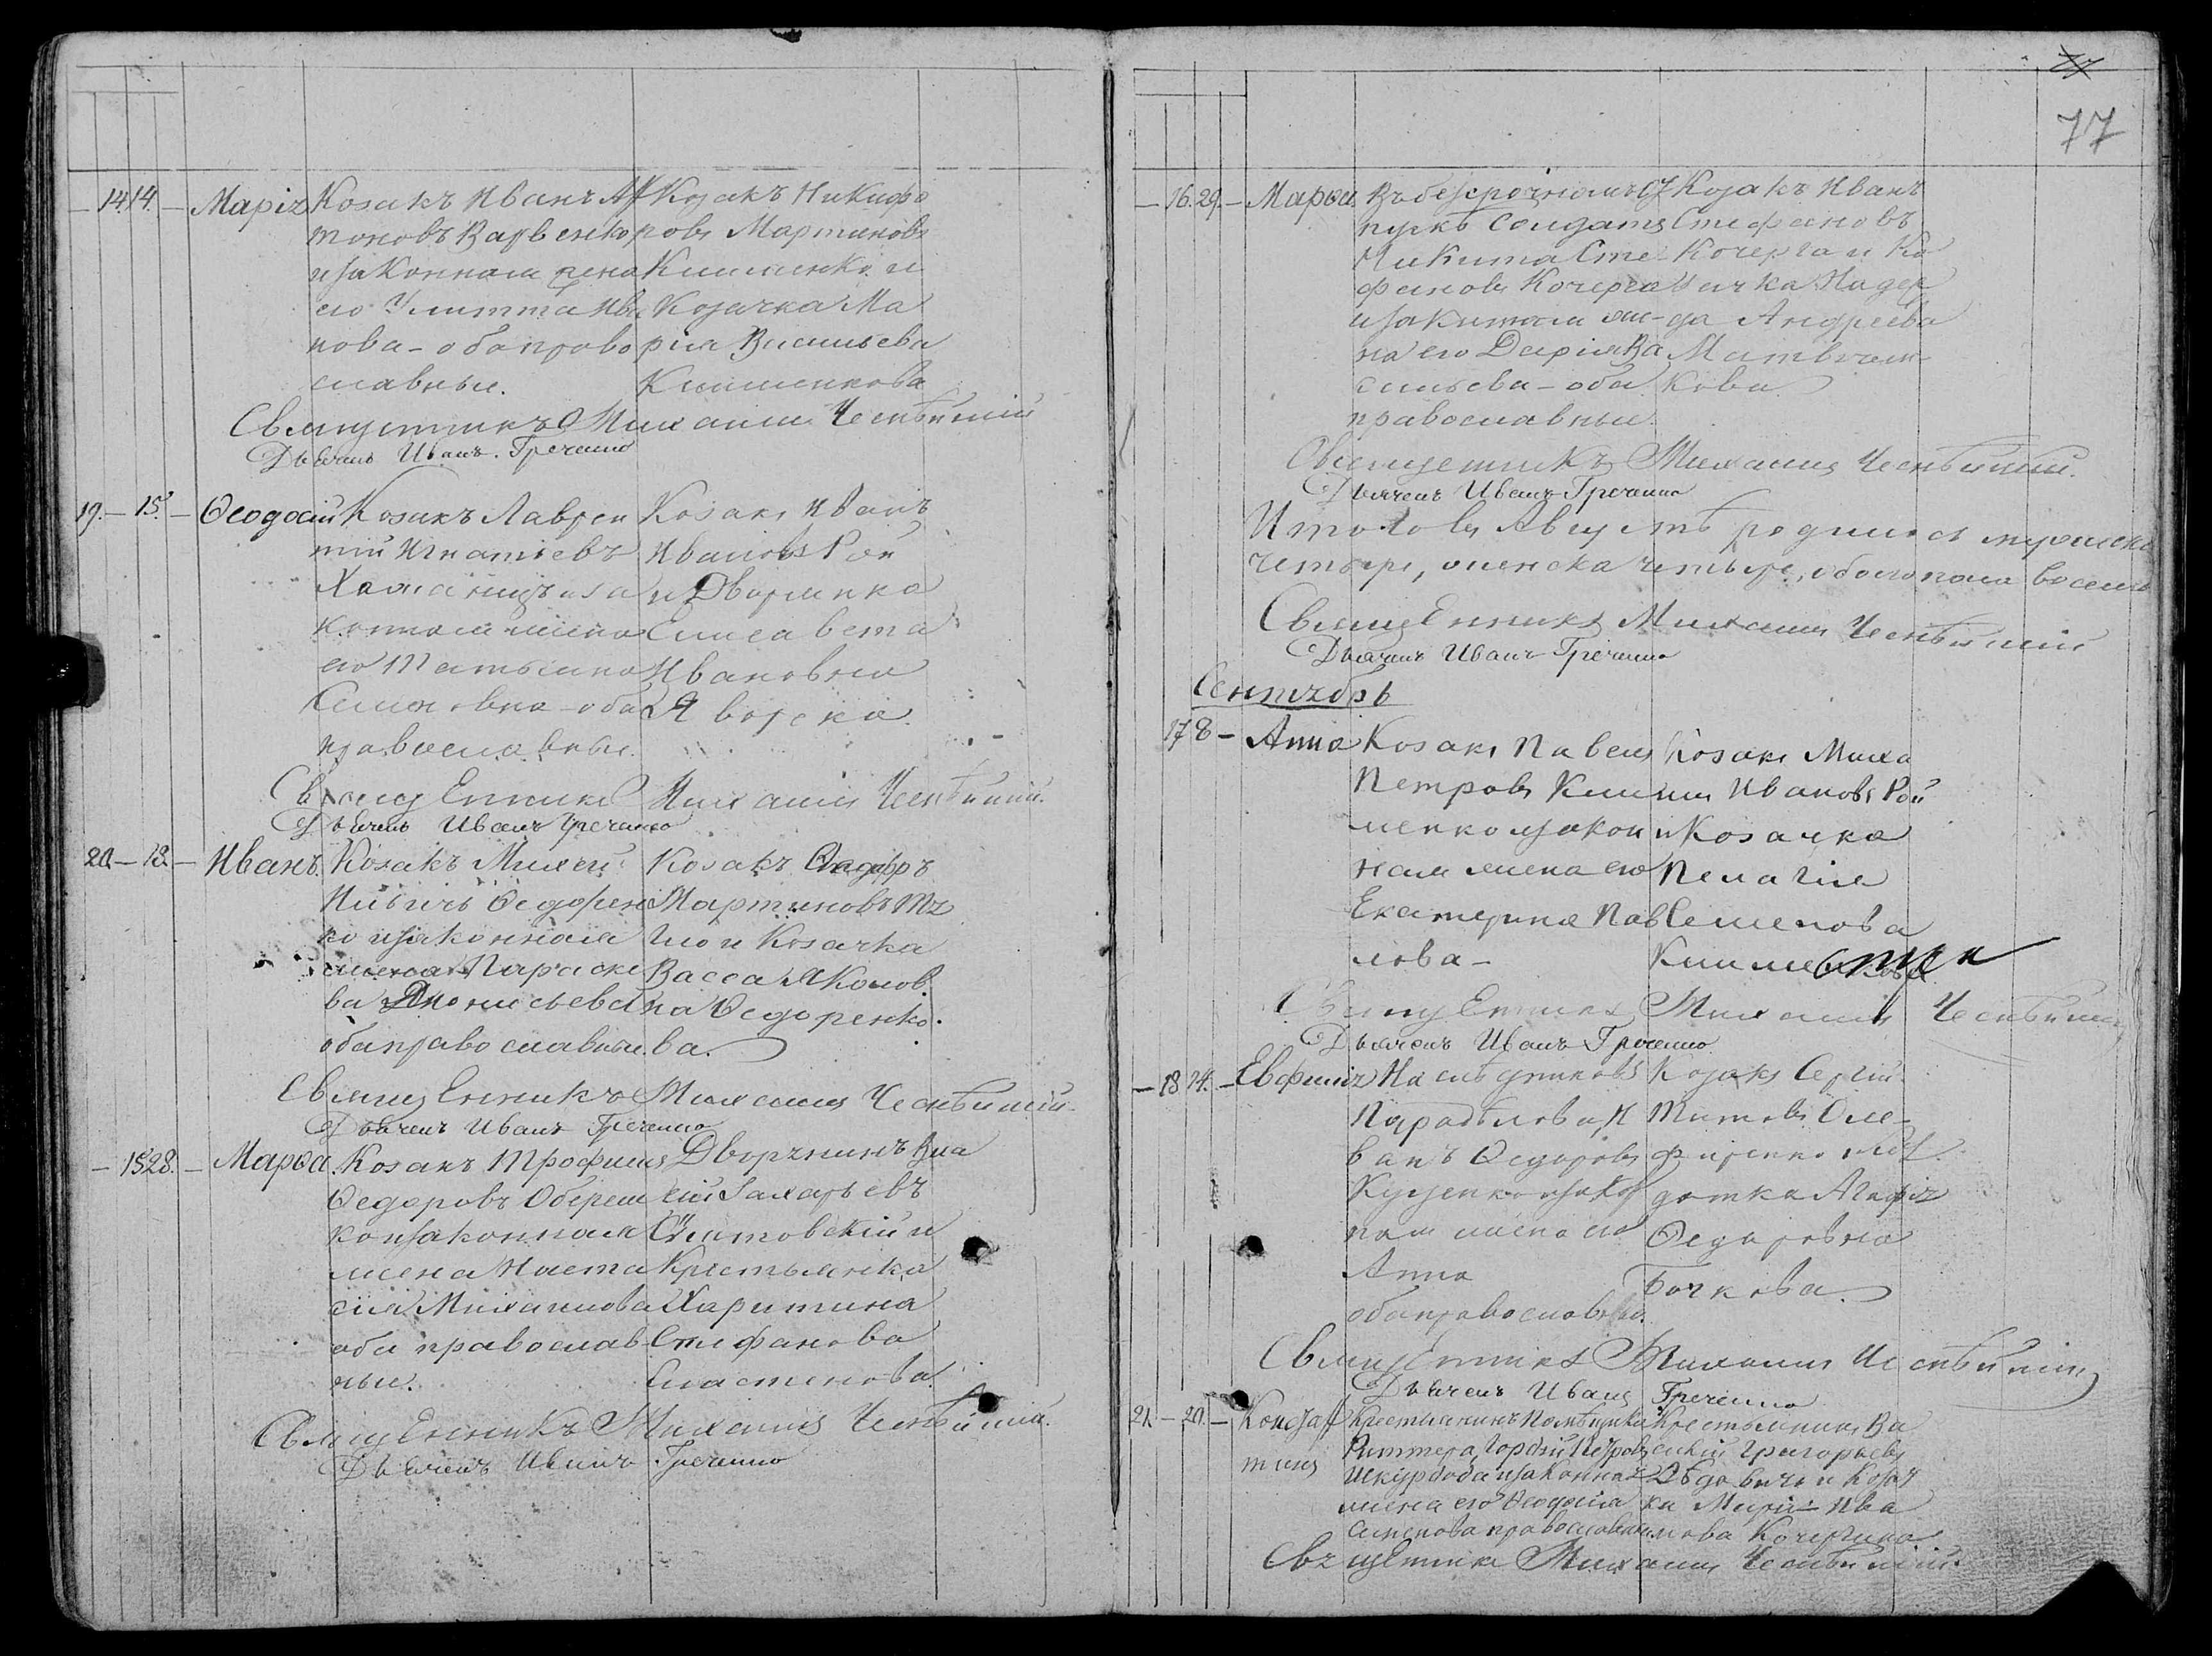 14. 14. – Марія
Козакъ Иванъ Ан
тоновъ Варвенко
и законная жена
его Улитта Ива
нова – оба право
славные.
Козакъ Никифо
ровъ Мартиновъ
Клименко и
Козачка Ма
рія Васильева
Клименкова
Священникъ Михаилъ
Дьячекъ Иванъ Гречено
19. – 15. – Ѳеодосій
Козакъ Лаврен
тій Игнатіевъ
и за
конная жена
его Татьяна
Семеновна – оба
православные.
Козакъ Иванъ
Ивановъ Рой
и Дворянка
Елисавета
Ивановна
Яворска
Священникъ Михаилъ
Дьячекъ Иванъ Гречено
20. – 18. – Иванъ.
Козакъ Михей
Ѳедорен
ко и законная
жена Параске
ва Діонисьева
оба православные.
Козакъ Ѳеодоръ
Мартиновъ Тя
гло и Козачка
Васса Яковов
на Ѳедоренко
ва.
Священникъ Михаилъ
Дьячекъ Иванъ Гречено
– 15 28. – Марѳа.
Козакъ Трофимъ
Ѳедоровъ Оберем
ко и законная
жена Наста
сія Михаилова
оба православ
ные.
Дворянинъ Вла
сій Захарьевъ
и
Крестьянка
Харитина
Стефанова
Сластенова.
Священникъ Михаилъ
Дьячекъ Иванъ Гречено
77
77
– 16. 29. – Марѳа.
Въ безсрочномъ от
пуску Солдатъ
Никита Сте
фановъ Кочерга
и законная же
на его Дарія Ва
сильева – оба
православные.
Козакъ Иванъ
Стефановъ
Кочерга и Ко
зачка Надеж
да Андреева
Матвіен
кова
Священникъ Михаилъ
Дьячекъ Иванъ Гречено
Итого въ Августѣ родилось мужеска
четыре, женска четыре, обоего пола восемь
Священникъ Михаилъ
Дьячекъ Иванъ Гречено
Сентябрь
17 8 – Анна
Козакъ Павелъ
Петровъ Кли
менко и закон
ная жена его
Екатерина Пав
лова –
Козакъ Миха
илъ Ивановъ Рой
и Козачка
Пелагія
Семенова
Клименкова
Священникъ Михаилъ
Дьячекъ Иванъ Гречено
– 18 14. – Евфимія
Наслѣдниковъ
И
ванъ Ѳедоровъ
Куценко и закон
ная жена его
Анна
оба православные.
Козакъ Сергій
Титовъ Оле
фиренко и Сол
датка Агафія
Ѳедоровна
Бочкова.
Священникъ Михаилъ
Дьячекъ Иванъ Гречено
21. – 20. – Констан
тинъ
Крестьянинъ Помѣщика
Риттера Гордій Петровъ
и законная
жена его Ѳеодосія
Семенова православные
Крестьянинъ Ва
силій Григорьевъ
и Козач
ка Марія Ива
нова Кочергина
Священникъ Михаилъ